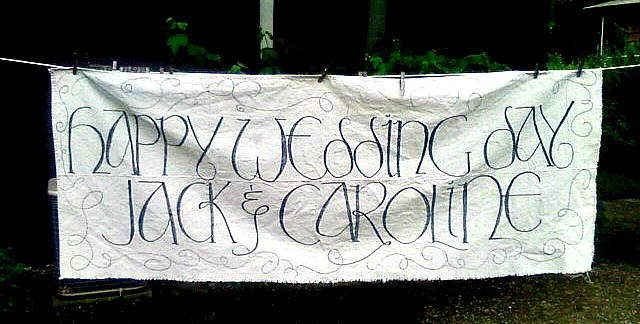 HAPPY WEDDING DAY
JACK & CAROLINE